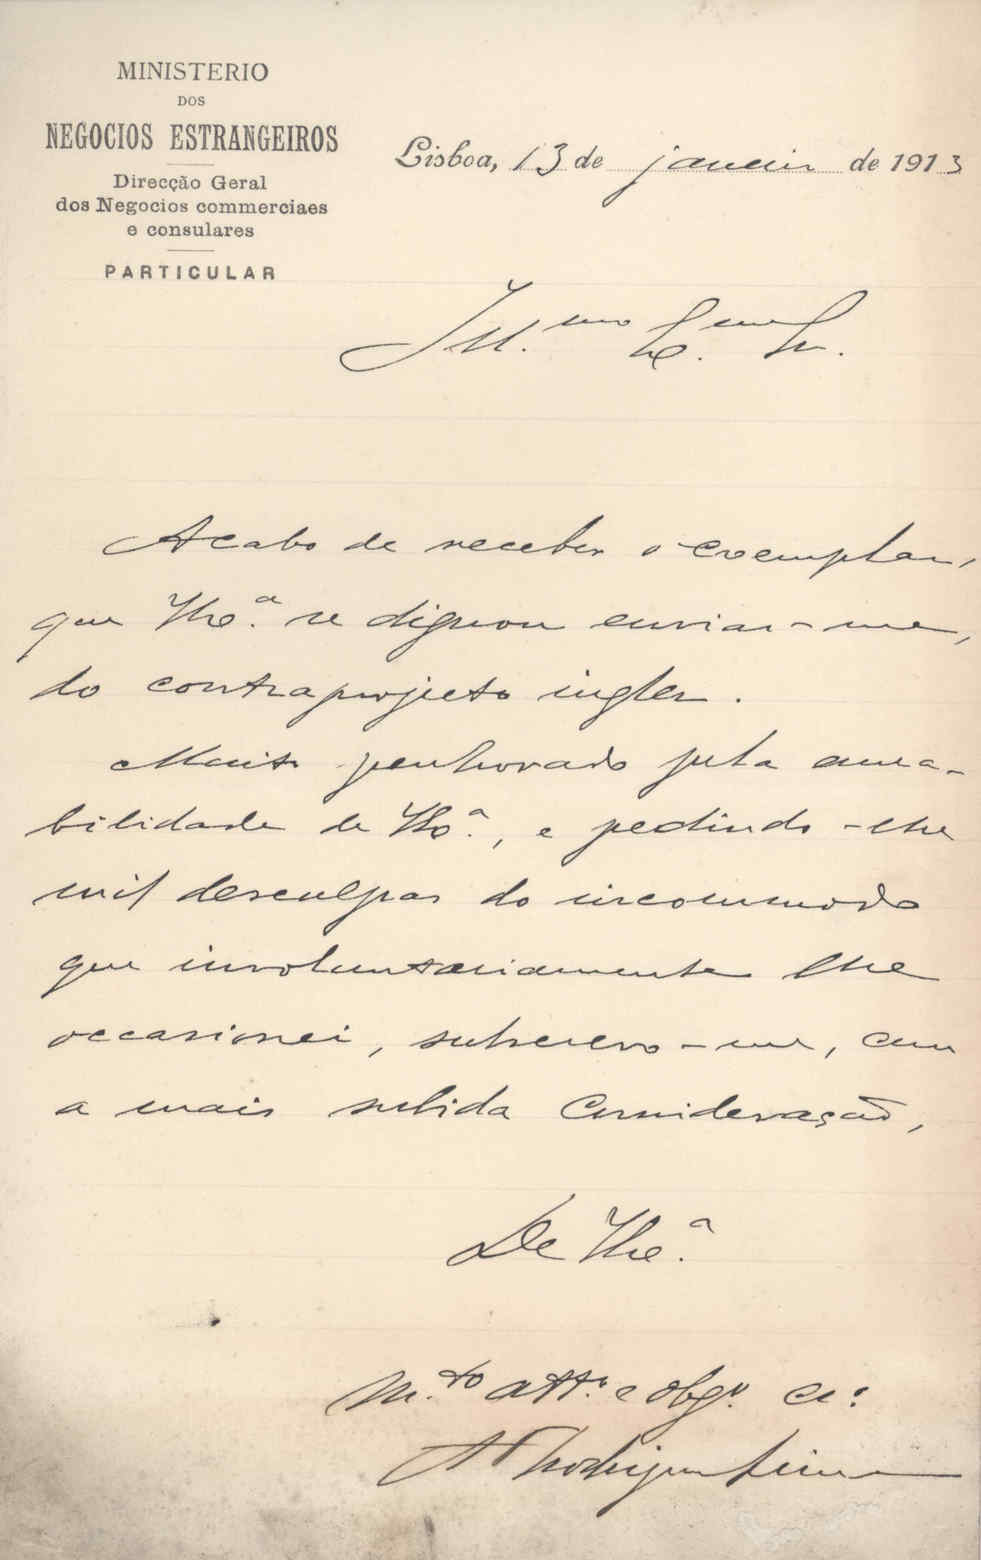 MINISTERIO
DOS
NEGOCIOS ESTRANGEIROS
Direcção Geral
dos Negocios commerciaes
e consulares
PARTICULAR
Lisboa, 13 de janeiro de 1913
Ill.mo Ex.mo Sr.
Acabo de receber o exemplar,
que V. Ex.a se dignou enviar-me,
do contraprojecto inglez.
Muito penhorado pela ama-
bilidade de V. Ex.a, e pedindo-lhe
mil desculpas do incommodo
que involuntariamente lhe
occasionei, subscrevo-me, com
a mais subida consideração,
De V. Ex.a
M.to att.o e obg.o
Rodrigues